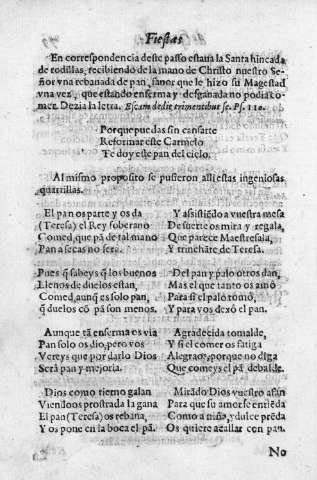 Fiestas
En correspondencia deste passo estaua la Santa hincada
de rodillas, recibiendo de la mano de Christo nuestro Se-
ñor vna rebanada de pan, fauor que le hizo su Magestad
vna vez, que estando enferma y desganada no podia co-
mer. Dezia la letra. Escam dedit timentibus se. Ps. 110.
Porque puedas sin cansarte
Reformar este Carmelo
Te doy este pan del cielo.
Al mismo proposito se pusieron alli estas ingeniosas
quartillas.
El pan os parte y os da
(Teresa) el Rey soberano
Comed, que pā de tal mano
Pan a secas no será.
Pues q̄ sabeys q̄ los buenos
Llenos de duelos estan,
Comed, aunq̄ es solo pan,
q̄ duelos cō pā son menos.
Aunque tā enferma es via
Pan solo os dio, pero vos
Vereys que por darlo Dios
Será pan y mejoria.
Dios como tierno galan
Viendoos prostrada la gana
El pan (Teresa) os rebana,
Y os pone en la boca el pā.
Y assistiēdo a vuestra mesa
De suerte os mira y regala,
Que parece Maestresala,
Y trinchāte de Teresa.
Del pan y palo otros dan,
Mas el que tanto os amō
Para si el palo tomó,
Y para vos dexó el pan.
Agradecida tomalde,
Y si el comer os fatiga
Alegraos, porque no diga
Que comeys el pā debalde.
Mirādo Dios vuestro afan
Para que su amor se entiēda
Como a niña, y dulce prēda
Os quiere acallar con pan.
No